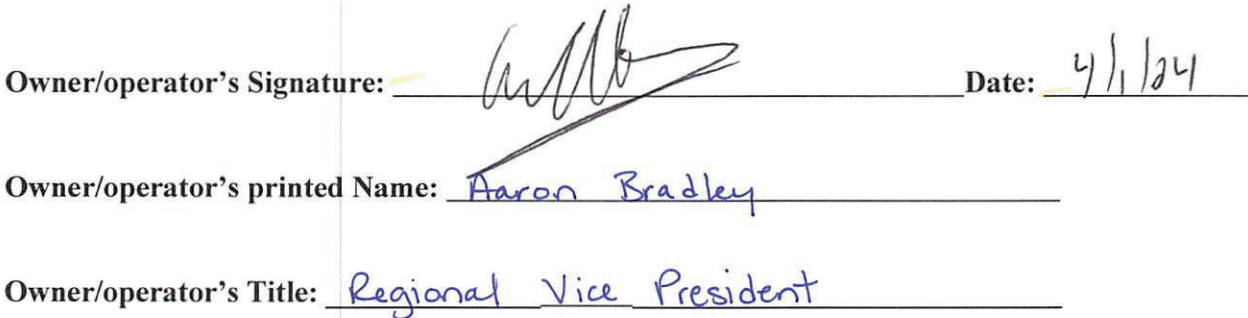 Owner/operator's Signature: Date: 4/1/24
Owner/operator's printed Name: Aaron Bradley
Owner/operator's Title: Regional Vice President